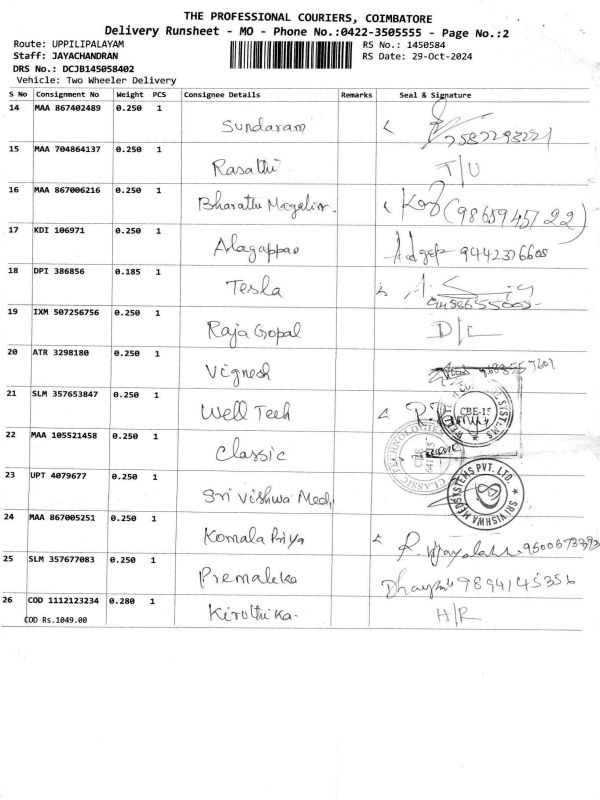 THE PROFESSIONAL COURIERS, COIMBATORE
Delivery Runsheet - MO - Phone No.:0422-3505555 - Page No.:2
Route: UPPILIPALAYAM RS No.: 1450584
Staff: JAYACHANDRAN RS Date: 29-Oct-2024
DRS No.: DCJB145058402
Vehicle: Two Wheeler Delivery
S No Consignment No Weight PCS Consignee Details Remarks Seal & Signature
14 MAA 867402489 0.250 1
Sundaram
15 MAA 704864137 0.250 1
Rasathi T/U
16 MAA 867006216 0.250 1
Bharathi
17 KDI 106971 0.250 1
Alagappan 9442376605
18 DPI 386856 0.185 1
Tesla
19 IXM 507256756 0.250 1
Raja Gopal D/L
20 ATR 3298180 0.250 1
Vignesh
21 SLM 357653847 0.250 1
Well Tech CBE-15
22 MAA 105521458 0.250 1
Classic CLASSIC TECHNOLOGIES
23 UPT 4079677 0.250 1
Sri Vishwa Medi SRI VISHWA MEDSYSTEMS PVT. LTD.
24 MAA 867005251 0.250 1
Komala Priya
25 SLM 357677083 0.250 1
Premaleka 9894145356
26 COD 1112123234 0.280 1
Kiruthika H/R
COD Rs.1049.00